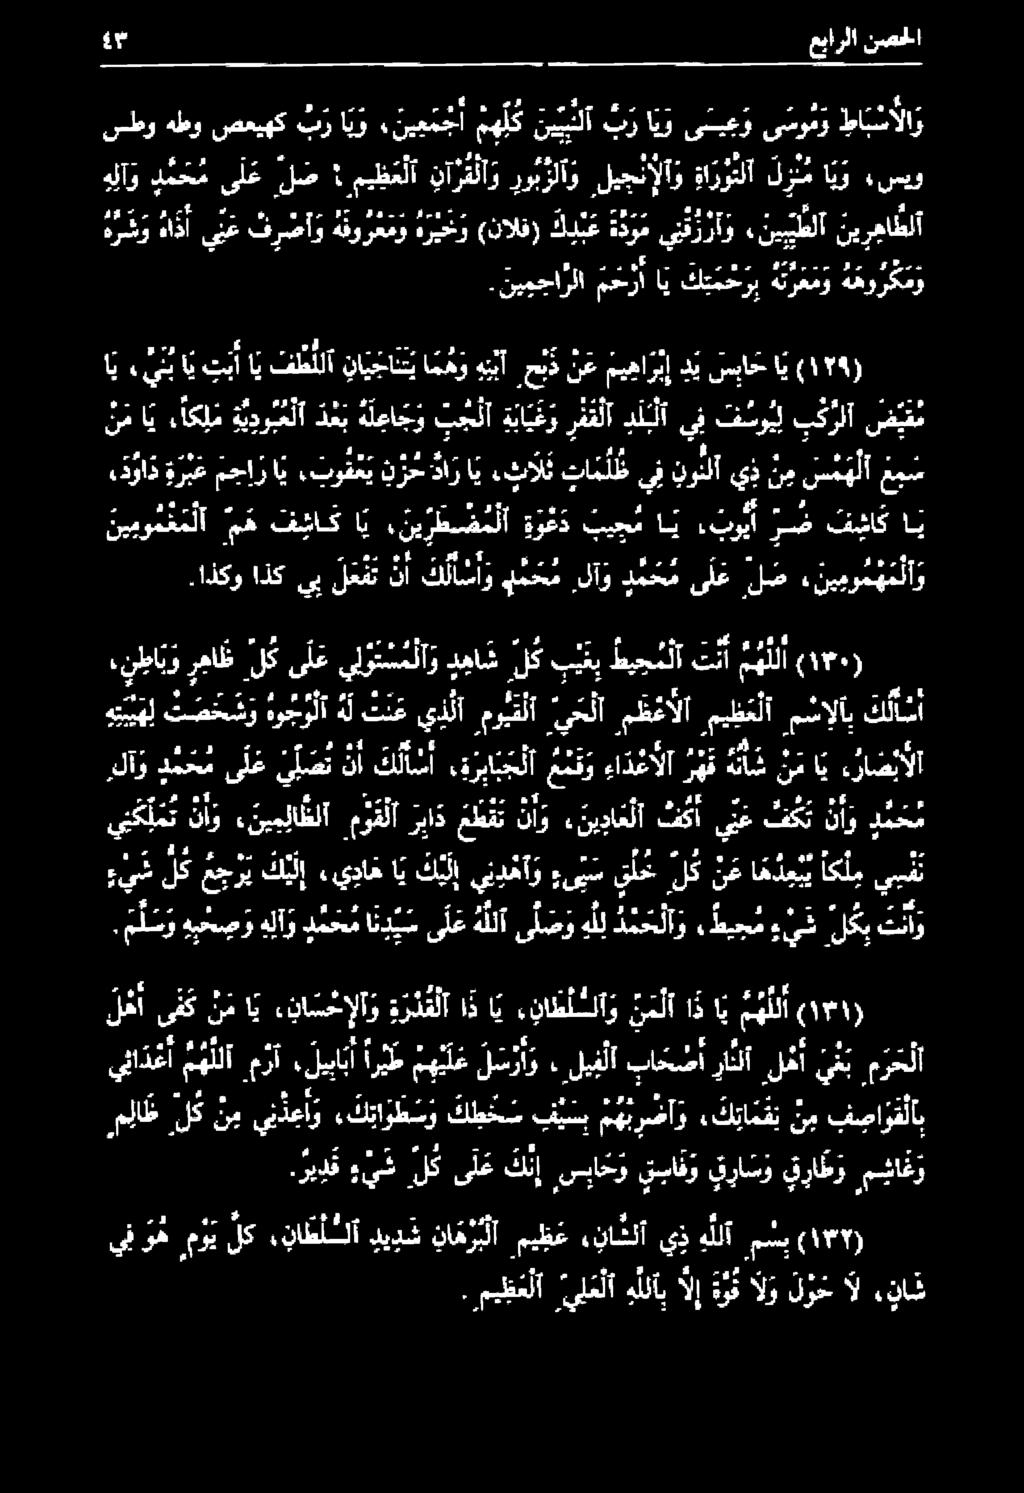 الحصن الرابع ٤٣
وَالأَسْبَاطِ وَمُوسَى وَعِيسَى وَيَا رَبَّ ٱلنَّبِيِّينَ كُلِّهِمْ أَجْمَعِينَ، وَيَا رَبَّ كهيعص وطه وطس
ويس، وَيَا مُنْزِلَ ٱلتَّوْرَاةِ وَٱلإِنْجِيلِ وَٱلزَّبُورِ وَٱلْقُرْآنِ ٱلْعَظِيمِ: صَلِّ عَلَى مُحَمَّدٍ وَآلِهِ
ٱلطَّاهِرِينَ ٱلطَّيِّبِينَ، وَٱرْزُقْنِي مَوَدَّةَ عَبْدِكَ (فلان) وَخَيْرَهُ وَمَعْرُوفَهُ وَٱصْرِفْ عَنِّي أَذَاهُ وَشَرَّهُ
وَمَكْرُوهَهُ وَمَعَرَّتَهُ بِرَحْمَتِكَ يَا أَرْحَمَ ٱلرَّاحِمِينَ.
(١٢٩) يَا حَابِسَ يَدِ إِبْرَاهِيمَ عَنْ ذَبْحِ ٱبْنِهِ وَهُمَا يَتَنَاجَيَانِ ٱللُّطْفَ يَا أَبَتِ يَا بُنَيَّ، يَا
مُقَيِّضَ ٱلرَّكْبِ لِيُوسُفَ فِي ٱلْبَلَدِ ٱلْقَفْرِ وَغَيَابَةِ ٱلْجُبِّ وَجَاعِلَهُ بَعْدَ ٱلْعُبُودِيَّةِ مَلِكاً، يَا مَنْ
سَمِعَ ٱلْهَمْسَ مِنْ ذِي ٱلنُّونِ فِي ظُلُمَاتٍ ثَلاَثٍ، يَا رَادَّ حُزْنِ يَعْقُوبَ، يَا رَاحِمَ عَبْرَةِ دَاوُدَ،
يَا كَاشِفَ ضُرِّ أَيُّوبَ، يَا مُجِيبَ دَعْوَةِ ٱلْمُضْطَرِّينَ، يَا كَاشِفَ هَمِّ ٱلْمَغْمُومِينَ
وَٱلْمَهْمُومِينَ، صَلِّ عَلَى مُحَمَّدٍ وَآلِ مُحَمَّدٍ وَأَسْأَلُكَ أَنْ تَفْعَلَ بِي كذا وكذا.
(١٣٠) أَللَّهُمَّ أَنْتَ ٱلْمُحِيطُ بِغَيْبِ كُلِّ شَاهِدٍ وَٱلْمُسْتَوْلِي عَلَى كُلِّ ظَاهِرٍ وَبَاطِنٍ،
أَسْأَلُكَ بِٱلإِسْمِ ٱلْعَظِيمِ ٱلأَعْظَمِ ٱلْحَيِّ ٱلْقَيُّومِ ٱلَّذِي عَنَتْ لَهُ ٱلْوُجُوهُ وَشَخَصَتْ لِهَيْبَتِهِ
ٱلأَبْصَارُ، يَا مَنْ شَأْنُهُ قَهْرُ ٱلأَعْدَاءِ وَقَمْعُ ٱلْجَبَابِرَةِ، أَسْأَلُكَ أَنْ تُصَلِّيَ عَلَى مُحَمَّدٍ وَآلِ
مُحَمَّدٍ وَأَنْ تَكُفَّ عَنِّي أَكُفَّ ٱلْعَادِينَ، وَأَنْ تَقْطَعَ دَابِرَ ٱلْقَوْمِ ٱلظَّالِمِينَ، وَأَنْ تُمَلِّكَنِي
نَفْسِي مِلْكاً يُبْعِدُهَا عَنْ كُلِّ خُلُقٍ سَيِّىءٍ وَٱهْدِنِي إِلَيْكَ يَا هَادِي، إِلَيْكَ يَرْجِعُ كُلُّ شَيْءٍ
وَأَنْتَ بِكُلِّ شَيْءٍ مُحِيطٌ، وَٱلْحَمْدُ لِلَّهِ وَصَلَّى ٱللَّهُ عَلَى سَيِّدِنَا مُحَمَّدٍ وَآلِهِ وَصَحْبِهِ وَسَلَّمَ.
(١٣١) أَللَّهُمَّ يَا ذَا ٱلْمَنِّ وَٱلسُّلْطَانِ، يَا ذَا ٱلْقُدْرَةِ وَٱلإِحْسَانِ، يَا مَنْ كَفَى أَهْلَ
ٱلْحَرَمِ بَغْيَ أَهْلِ ٱلنَّارِ أَصْحَابِ ٱلْفِيلِ، وَأَرْسَلَ عَلَيْهِمْ طَيْراً أَبَابِيلَ، ٱرْمِ ٱللَّهُمَّ أَعْدَائِي
بِٱلْقَوَاصِفِ مِنْ نِقَمَاتِكَ، وَٱضْرِبْهُمْ بِسَيْفِ سَخَطِكَ وَسَطَوَاتِكَ، وَأَعِذْنِي مِنْ كُلِّ ظَالِمٍ
وَغَاشِمٍ وَطَارِقٍ وَسَارِقٍ وَفَاسِقٍ وَحَابِسٍ إِنَّكَ عَلَى كُلِّ شَيْءٍ قَدِيرٌ.
(١٣٢) بِسْمِ ٱللَّهِ ذِي ٱلشَّانِ، عَظِيمِ ٱلْبُرْهَانِ شَدِيدِ ٱلسُّلْطَانِ، كلَّ يَوْمٍ هُوَ فِي
شَانٍ، لاَ حَوْلَ وَلاَ قُوَّةَ إِلاَّ بِٱللَّهِ ٱلْعَلِيِّ ٱلْعَظِيمِ.